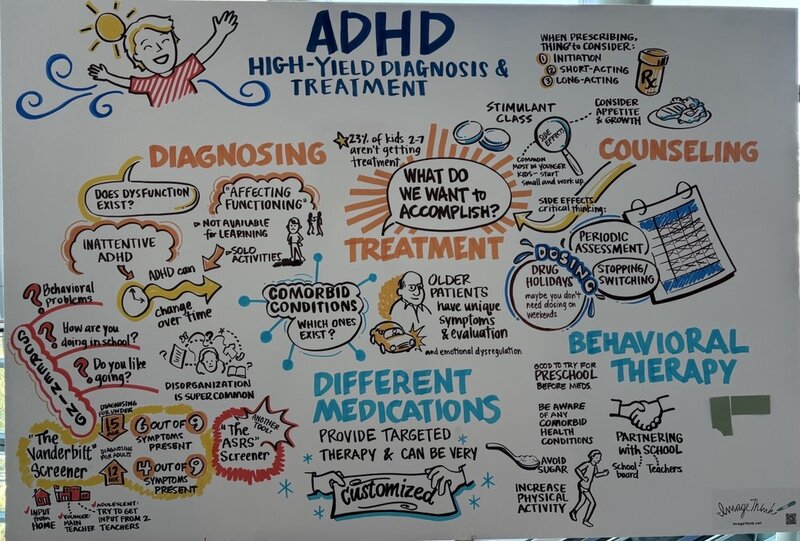 ADHD
HIGH-YIELD DIAGNOSIS &
TREATMENT
WHEN PRESCRIBING,
THING to CONSIDER:
1 INITIATION
2 SHORT-ACTING
3 LONG-ACTING
Rx
STIMULANT
CLASS
SIDE EFFECTS
CONSIDER
APPETITE
& GROWTH
COMMON
MOST IN YOUNGER
KIDS - START
SMALL and WORK UP.
23% of kids 2-7
aren't getting
treatment
DIAGNOSING
DOES DYSFUNCTION
EXIST?
"AFFECTING
FUNCTIONING"
NOT AVAILABLE
for LEARINING
SOLO
ACTIVITIES
INATTENTIVE
ADHD
ADHD can
change
over time
WHAT DO
WE WANT to
ACCOMPLISH?
TREATMENT
COUNSELING
SIDE EFFECTS
critical thinking:
DOSING
PERIODIC
ASSESSMENT
STOPPING/
SWITCHING
DRUG
HOLIDAYS
maybe you don't
need dosing on
weekends
COMORBID
CONDITIONS
WHICH ONES
EXIST?
OLDER
PATIENTS
have unique
symptoms
& evaluation
and emotional dysregulation
SCREENING
? Behavioral
problems
? How are you
doing in school?
? Do you like
going?
DISORGANIZATION
IS SUPER COMMON
"The
Vanderbilt"
Screener
DIAGNOSING
FOR UNDER
15
6 OUT OF 9
SYMPTOMS
PRESENT
DIAGNOSING
FOR ADULTS
12
AGE
4 OUT OF 9
SYMPTOMS
PRESENT
INPUT
from
HOME
YOUNGER:
MAIN
TEACHER
ADOLESCENT:
TRY TO GET
INPUT FROM 2
TEACHERS
ANOTHER
TOOL:
"The
ASRS"
Screener
DIFFERENT
MEDICATIONS
PROVIDE TARGETED
THERAPY & CAN BE VERY
customized
BEHAVIORAL
THERAPY
GOOD TO TRY FOR
PRESCHOOL
BEFORE MEDS.
BE AWARE
OF ANY
COMORBID
HEALTH
CONDITIONS
AVOID
SUGAR
INCREASE
PHYSICAL
ACTIVITY
PARTNERING
with SCHOOL
School
board
Teachers
ImageThink
imagethink.net